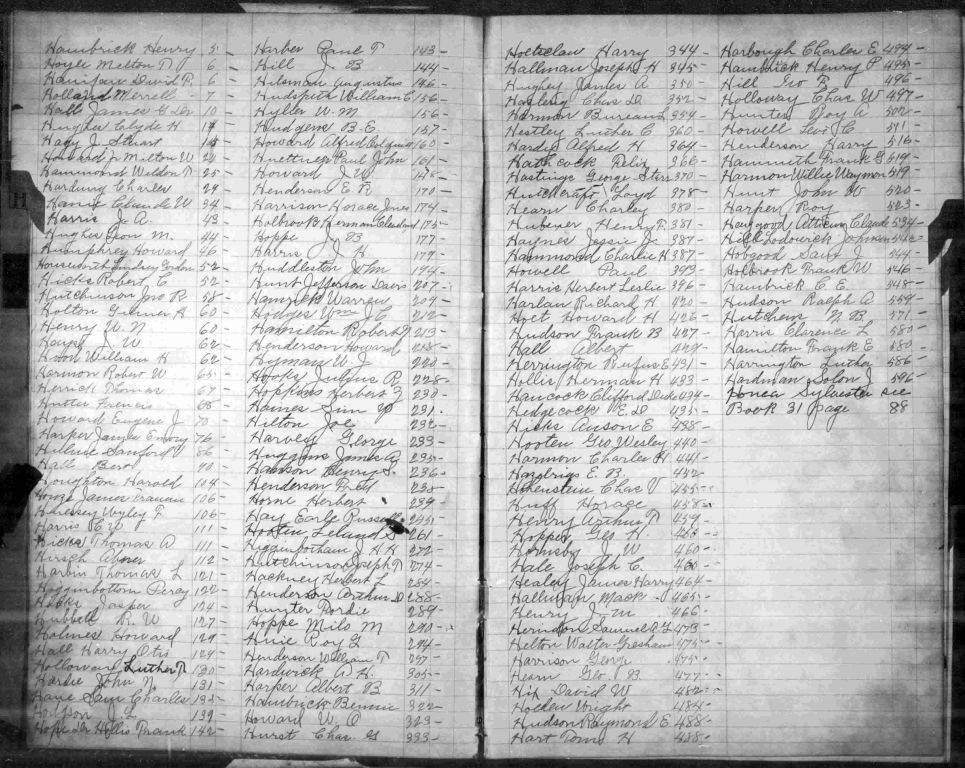 H
Hambrick Henry 5 -
Hoyle Melton T 6 -
David R. 6 -
Holland Merrell - 7 -
Hall James G 10 -
Hughes Clyde H
Hagy J Stuart
Howard Jr Milton W
Hammond Weldon T 25 -
Hardung Charles 29 -
Claude W 34 -
Harris J. A. 43 -
Hughes M. 44 -
Humphrey Howard 46 -
Lindsey 52 -
Hicks Robert C 52 -
Hutchinson Jno R. 58 -
Holton A 60 -
Henry W. N 60 -
J W 62 -
Hood William H 62 -
Harmon Robert W 65 -
Herrick Thomas 67 -
Hunter Francis 68 -
Howard Eugene J 70 -
Harper James Emory 76 -
Sanford 86 -
Hall Bert 90 -
Houghton Harold 104 -
James 106 -
Wyley F 106 -
Harris C W 111 -
Hicks Thomas A 111 -
Hirsch Abner 112 -
Harbin Thomas L 121 -
Higginbottom 122 -
Jasper 124 -
Hubbell R. W 127 -
Holmes Howard 129 -
Hall Harry Otis 129 -
Holloway Luther T 130 -
Hardie John N. 131 -
Sam Charles 135 -
139 -
Hollis Frank 142 -
Harber Paul T 143 -
Hill J B 144 -
Hilsman Augustus 146 -
Hudspeth William C 156 -
Hyller W. M 156 -
Hudgens B. E. 157 -
Howard Alfred 160 -
Huettner Paul John 161 -
Howard J W
Henderson E. R 170 -
Harrison Horace Jones 174 -
Holbrook Herman 175 -
Hoppe J B 177 -
Harris J. H 179 -
Huddleston John 194 -
Hunt Jefferson Davis 207 -
Hamrick Warren 209 -
Hodges Wm J C 212 -
Hamilton Robert 213 -
Henderson Howard 218 -
Hyman W J 220 -
Hooks Julius R 228 -
Hopkins Herbert F 230 -
Haines Jim 231 -
Hilton Joe 232 -
Harvey George 233 -
Huggins James A. 235 -
Hanson Henry S. 236 -
Henderson 238 -
Horne Herbert 239 -
Hay Earle Russell
Hooten Leland S 261 -
Higginbotham J. H. H 272 -
Hutchinson Joseph T 274 -
Hackney Herbert L 284 -
Henderson Arthur D 288 -
Hunter 289 -
Hoppe Milo M 290 -
Roy L 294 -
Henderson William T 297
Hardwick A H. 305 -
Harper Albert B 311 -
Hambrick Bennie 322 -
Howard W. A 323 -
Hurst Chas. G 333 -
Holtzclaw Harry 344 -
Hallman Joseph H 345 -
Hughey James A 350 -
Chas D 352 -
Harmon 354 -
Hestley Luther C 360 -
Hardie Alfred H 364 -
Hathcock Felix 366 -
Hastings George 370 -
Hutchcraft Loyd 378 -
Hearn Charley 380 -
Hubener Henry F. 381 -
Haynes Jessie J. 387 -
Hammond Charlie H 387 -
Howell Paul 393 -
Harris Herbert Leslie 396 -
Harlan Richard H 420 -
Holt Howard H 426 -
Hudson Frank B 427 -
Hall Albert 429 -
Herrington Rufus E 431 -
Hollis Herman H 433 -
Hancock Clifford 434 -
Hedgecock W. D 435 -
Hicks Anson E 438 -
Hooten Geo Wesley 440 -
Harmon Charles H 441 -
Hazelrigs E. B. 442 -
Hohenstein Chas V 455 -
Huff Horace 458 -
Henry Arthur T 459 -
Hopper Geo H.
Hornsby W 460 -
Hale Joseph C. 460 -
Healey James Harry 464 -
Halliman Mack 465 -
Henry J M 466 -
Herndon Samuel 473 -
Helton Walter Gresham 475 -
Harrison George 475 -
Hearn Geo. B 477 -
Hix David W 482 -
Holden Wright 484 -
Hudson Raymond E 488 -
Hart Tom H 488 -
Harbough Charles E 494 -
Hambrick Henry P 495 -
Hill Geo F 496 -
Holloway Chas W 497 -
Hunter Roy A 502 -
Howell Levi C 511 -
Henderson Harry 516 -
Hammeth Frank 519 -
Harmon Willie Waymon 519 -
Hunt John W 520 -
Harper Roy 523 -
Haygood Claude 534 -
Hill John
Hobgood Saul J 544 -
Holbrook Frank W 546 -
Hambrick C E 548 -
Hudson Ralph A 554 -
Hutchens N B 571 -
Harris Clarence L 580 -
Hamilton Frank E 580 -
Harrington Luther 586 -
Hardman Solon J 596 -
Honea Sylvester see
Book 31 page 88